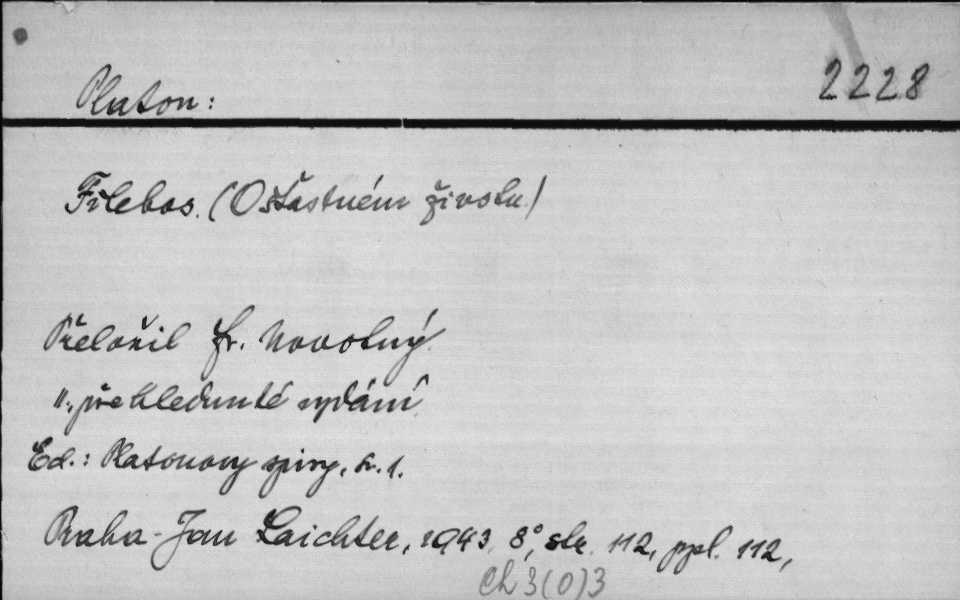 Platon:
2228
Filebos. (O šťastném životu.)
Přeložil Fr. Novotný.
II. přehlednuté vydání.
Ed.: Platonovy spisy. sv. 1.
Praha - Jan Laichter, 1943, 8°, str. 112, ppl. 112,
Ch 3(0)3